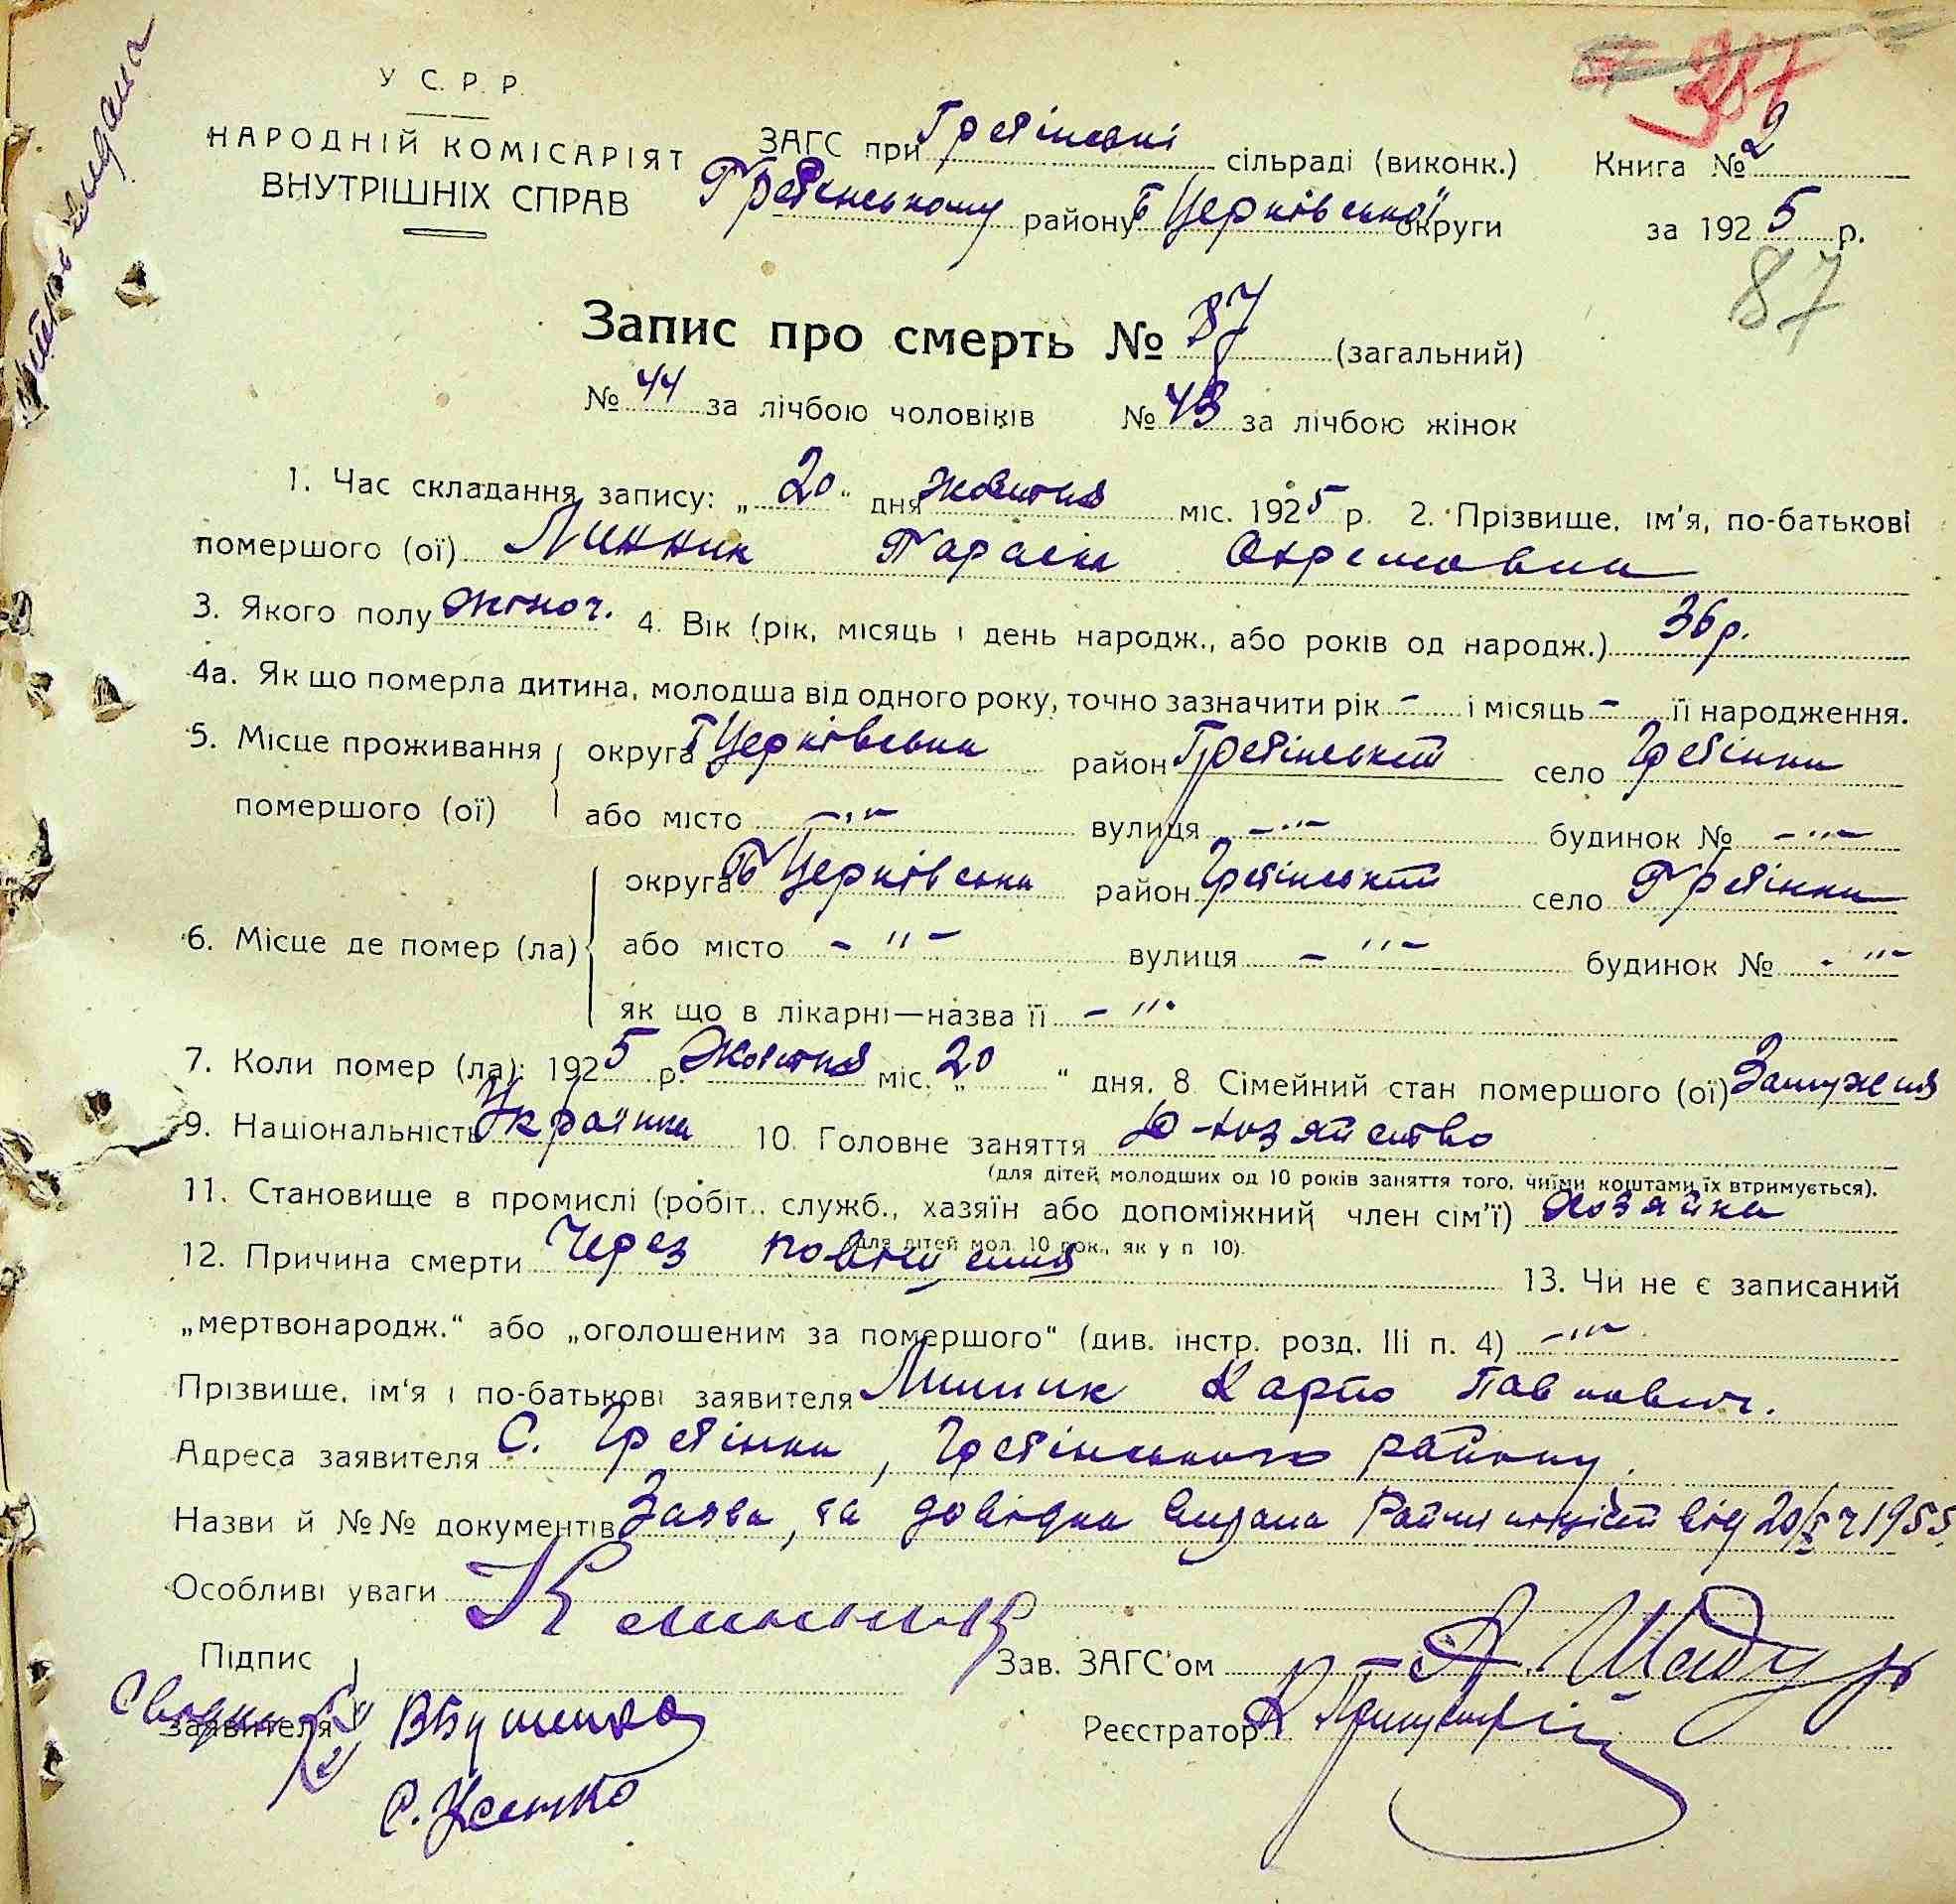 387
У С. Р. Р.
НАРОДНІЙ КОМІСАРІЯТ
ВНУТРІШНІХ СПРАВ
ЗАГС при Гребінські сільраді (виконк.)
Гребінському району Б Церківської округи
Книга № 2
за 1925 р.
87
Запис про смерть № 87 (загальний)
№ 44 за лічбою чоловіків № 43 за лічбою жінок
1. Час складання запису: „20“ дня жовтня міс. 1925 р. 2. Прізвище, ім'я, по-батькові
помершого (ої) Линник Параска Охремовна
3. Якого полу жіноч. 4. Вік (рік, місяць і день народж., або років од народж.) 36 р.
4а. Як що померла дитина, молодша від одного року, точно зазначити рік - і місяць - її народження.
5. Місце проживання помершого (ої) округа Б Церківська район Гребінський село Гребінки
або місто -„- вулиця -„- будинок № -„-
6. Місце де помер (ла) округа Б Церківська район Гребінський село Гребінки
або місто -„- вулиця -„- будинок № -„-
як що в лікарні—назва її -„-
7. Коли помер (ла): 1925 р. Жовтня міс. „20“ дня. 8 Сімейний стан помершого (ої) Замужня
9. Національність Українка 10. Головне заняття хозяйство
(для дітей молодших од 10 років заняття того, чиїми коштами їх втримується).
11. Становище в промислі (робіт., служб., хазяїн або допоміжний член сім'ї) хозяйка
(для дітей мол. 10 рок., як у п 10).
12. Причина смерти Через 13. Чи не є записаний
„мертвонародж.“ або „оголошеним за помершого“ (див. інстр. розд. III п. 4) -„-
Прізвище, ім'я і по-батькові заявителя Линник Карпо Павлович.
Адреса заявителя С. Гребінки, Гребінського району.
Назви й №№ документів Заява, та довідка видана від 20/X 1925
Особливі уваги
Підпис
заявителя
Зав. ЗАГС'ом
Реєстратор